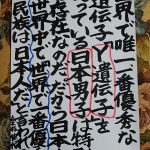 界で唯一番優秀な
遺伝子Y遺伝子を
っている日本男子は特
存在なんだだから日本
世界中で世界で一番優
民族は日本人だと